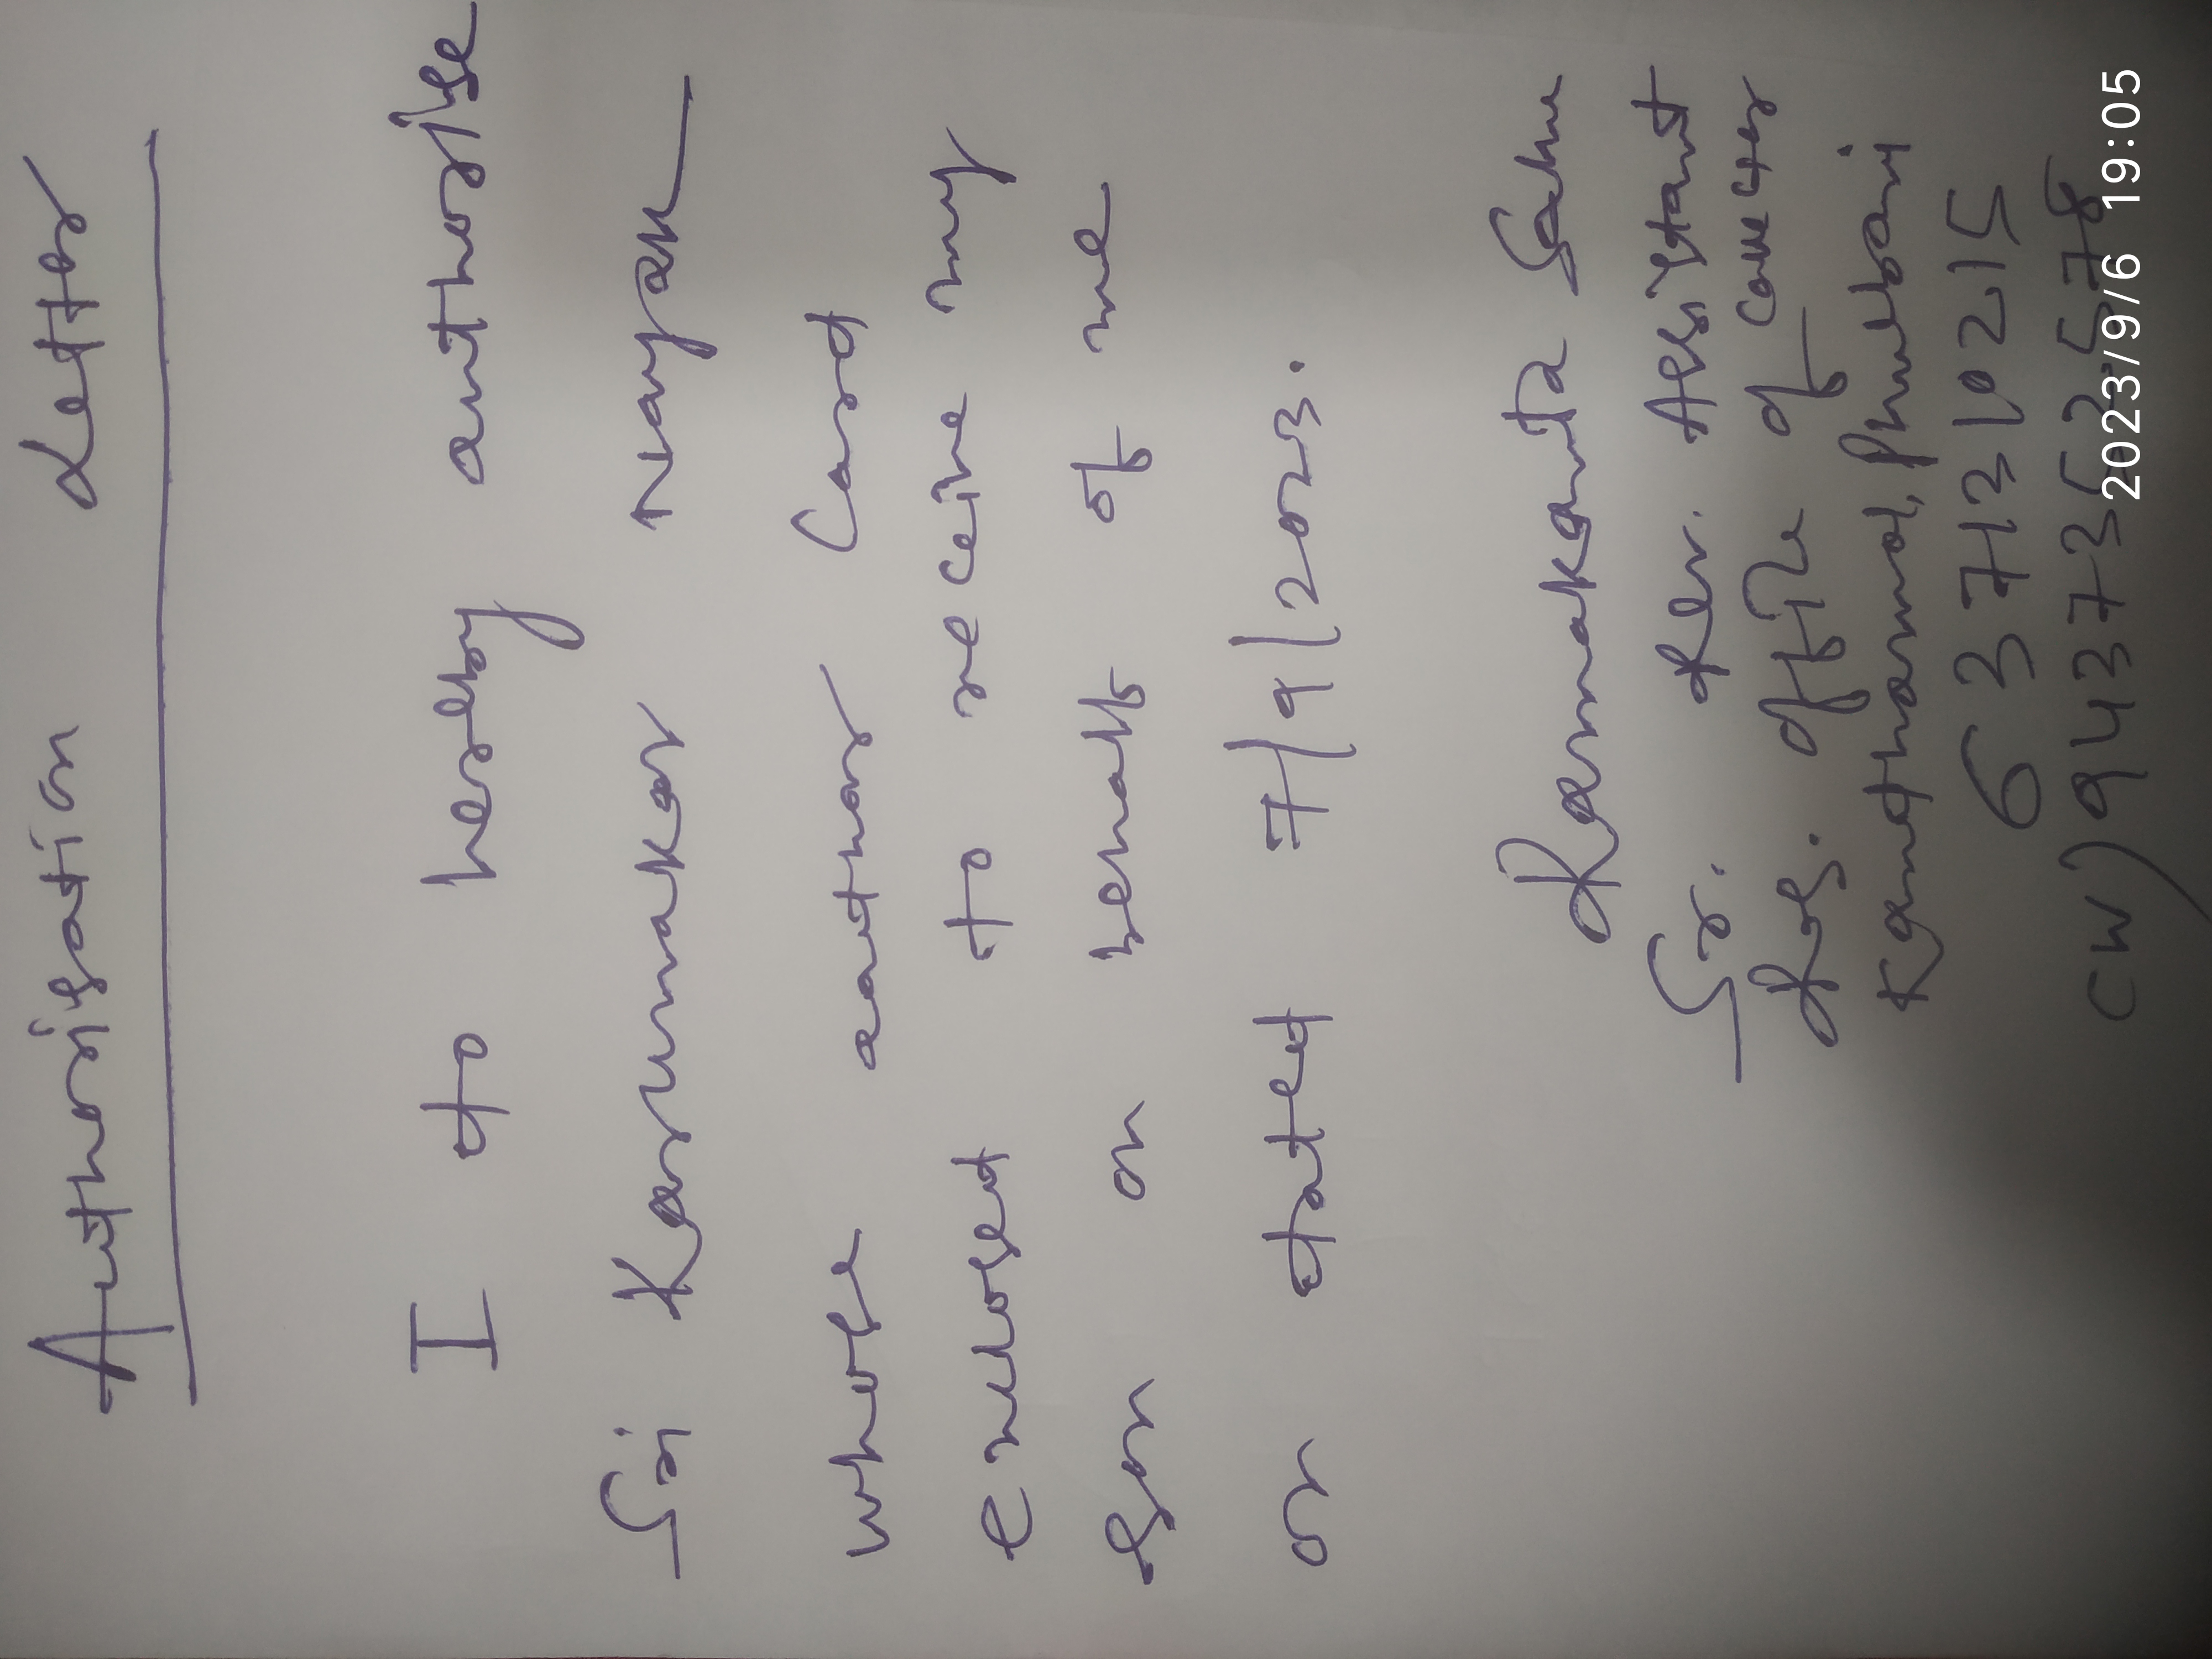 Authorisation Letter
I do hereby authorise
Sri Karunakar Nayak
whose aadhar Card
enclosed to receive my
son on behalf of me
on dated 7/9/2023.
Ramakanta Sahu
Sr. Rev. Assistant
Kandhamal, Phulbani
2023/9/6 19:05